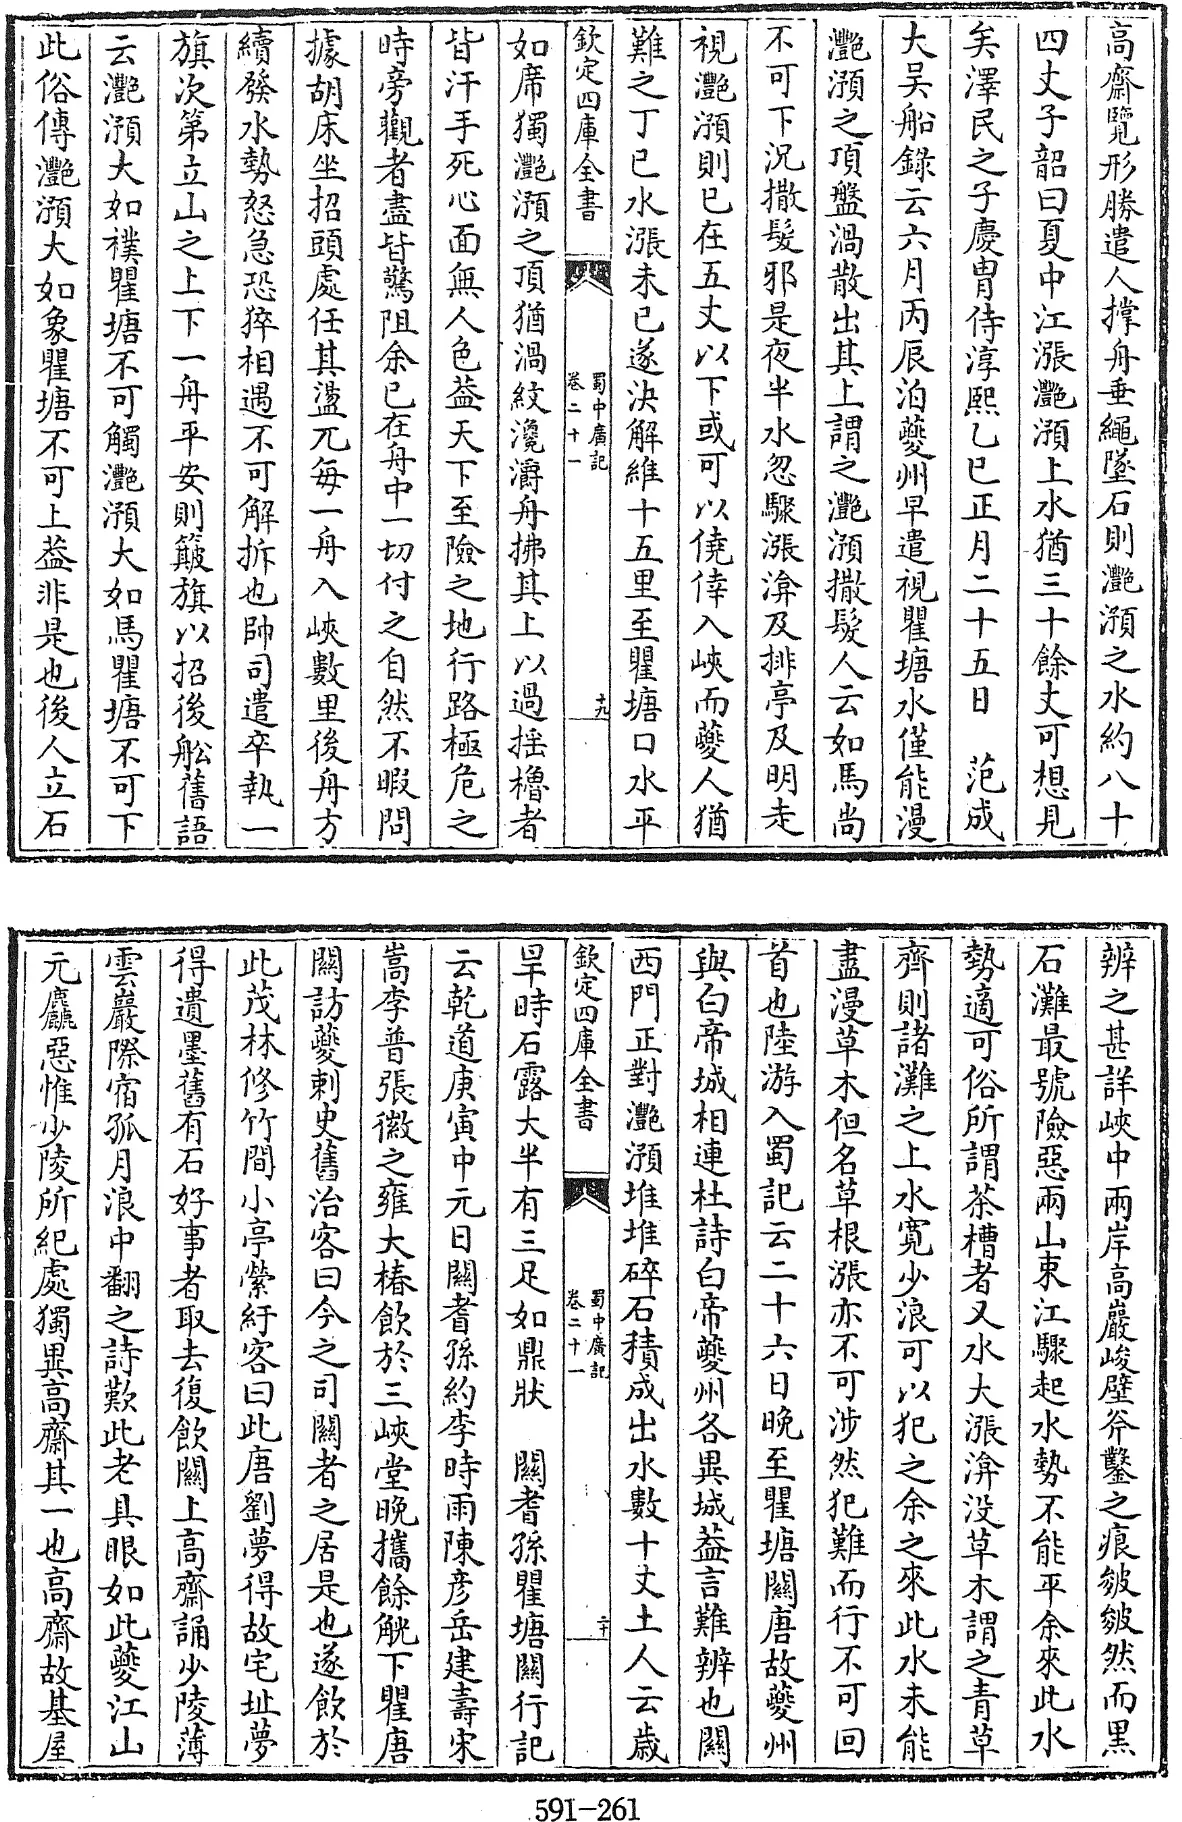 高齋覽形勝遣人撑舟垂繩墜石則灩澦之水約八十
四丈子韶曰夏中江漲灩澦上水猶三十餘丈可想見
矣澤民之子慶胄侍淳熙乙巳正月二十五日　范成
大吴船錄云六月丙辰泊夔州早遣視瞿塘水僅能漫
灩澦之頂盤渦散出其上謂之灩澦撒髮人云如馬尚
不可下況撒髮邪是夜半水忽驟漲渰及排亭及明走
視灩澦則已在五丈以下或可以僥倖入峽而夔人猶
難之丁巳水漲未已遂決解維十五里至瞿塘口水平
欽定四庫全書
蜀中廣記
卷二十一
十九
如席獨灩澦之頂猶渦紋瀺灂舟拂其上以過揺櫓者
皆汗手死心面無人色葢天下至險之地行路極危之
時旁觀者盡皆驚阻余已在舟中一切付之自然不暇問
據胡床坐招頭處任其盪兀每一舟入峽數里後舟方
續發水勢怒急恐猝相遇不可解拆也帥司遣卒執一
旗次第立山之上下一舟平安則簸旗以招後舩舊語
云灩澦大如襆瞿塘不可觸灩澦大如馬瞿塘不可下
此俗傳灩澦大如象瞿塘不可上葢非是也後人立石
辨之甚詳峽中兩岸高巖峻壁斧鑿之痕皴皴然而黑
石灘最號險惡兩山束江驟起水勢不能平余來此水
勢適可俗所謂茶槽者又水大漲渰没草木謂之青草
齊則諸灘之上水寛少浪可以犯之余之來此水未能
盡漫草木但名草根漲亦不可涉然犯難而行不可回
首也陸游入蜀記云二十六日晚至瞿塘關唐故夔州
與白帝城相連杜詩白帝夔州各異城葢言難辨也關
西門正對灩澦堆堆碎石積成出水數十丈土人云歳
欽定四庫全書
蜀中廣記
卷二十一
二十
旱時石露大半有三足如鼎狀　關耆孫瞿塘關行記
云乾道庚寅中元日關耆孫約李時雨陳彦岳建壽宋
嵩李普張徽之雍大椿飲於三峽堂晚攜餘觥下瞿唐
關訪夔刺史舊治客曰今之司關者之居是也遂飲於
此茂林修竹間小亭縈紆客曰此唐劉夢得故宅址夢
得遺墨舊有石好事者取去復飲關上高齋誦少陵薄
雲巖際宿孤月浪中翻之詩歎此老具眼如此夔江山
元麤惡惟少陵所紀處獨異高齋其一也高齋故基屋
591-261